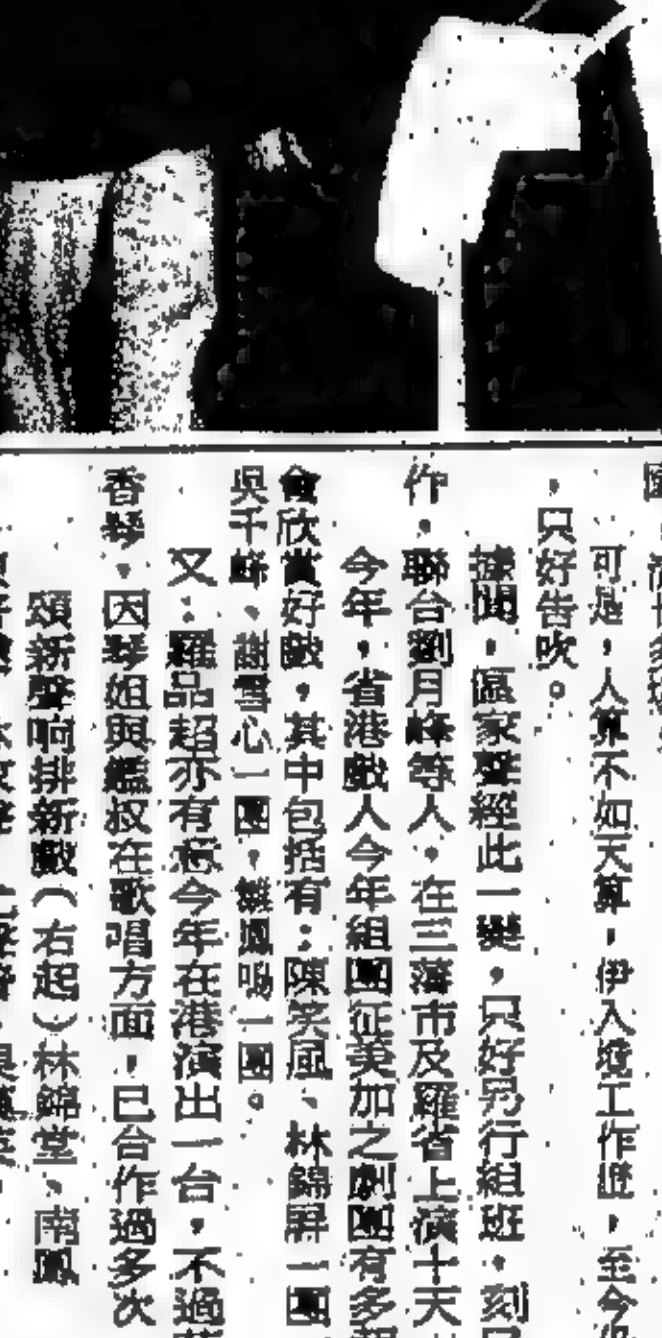 可是，人算不如天算，伊入境工作證，至今
，只好告吹。
據聞，區家聲經此一變，只好另行組班，刻
作，聯台劉月峰等人，在三藩市及羅省上演十天
今年，省港戲人今年組團征美加之劇團有多
會欣賞好戲，其中包括有：陳笑風、林錦屏一團
吳千峰、謝雪心一團，雛鳳鳴一團。
又：羅品超亦有意今年在港演出一台，不過
香琴，因琴姐與艦叔在歌唱方面，已合作過多次
頌新聲响排新戲（右起）林錦堂、南鳳